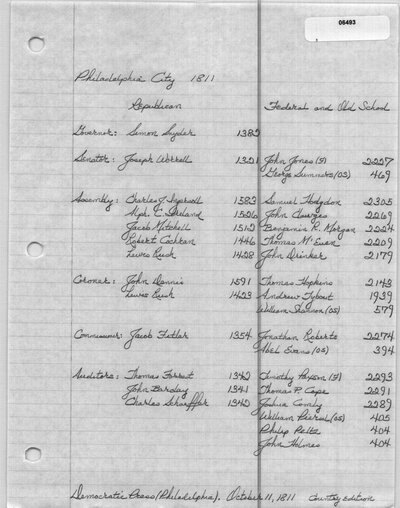 06493
Philadelphia City 1811
Republican Federal and Old School
Governor: Simon Snyder 1382
Senator: Joseph Worrell 1321 John Jones (F) 2227
George Summers (OS) 469
Assembly: Charles J Ingersoll 1583 Samuel Hodgdon 2305
Mph. C. Ireland 1526 John Clawges 2269
Jacob Mitchell 1512 Benjamin R. Morgan 2224
Robert Cochran 1446 Thomas McEuen 2209
Lewis Rush 1428 John Drinker 2179
Coroner: John Dennis 1591 Thomas Hopkins 2143
Lewis Rush 1423 Andrew Tybout 1939
William Shannon (OS) 579
Commissioner: Jacob Fitler 1354 Jonathan Roberts 2274
Abel Evans (OS) 394
Auditors: Thomas Forrest 1342 Timothy Paxson (F) 2293
John Barclay 1341 Thomas P. Cope 2291
Charles Schaeffer 1340 Joshua Comly 2289
William (OS) 405
Philip Peltz 404
John Holmes 404
Democratic Press (Philadelphia). October 11, 1811 Country Edition